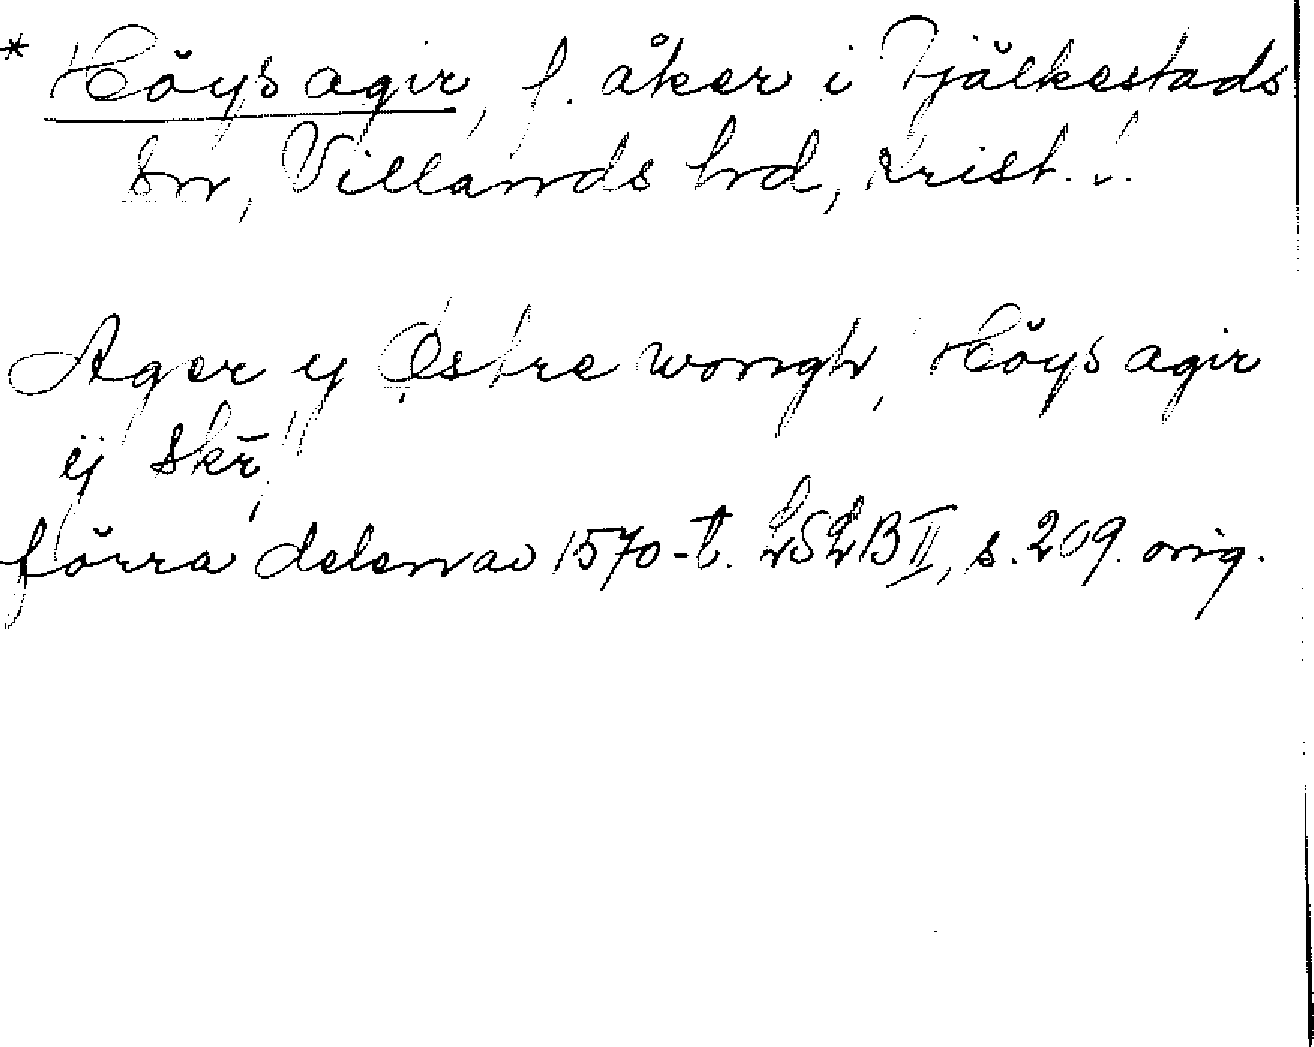 * Höys agir, f. åker i Fjälkestads
sn, Villands hrd, Krist. l.
Ager y Østre wongh, Höys agir
ÿ skr̄,
förra delen av 1570-t. LSLB II, s. 209. orig.